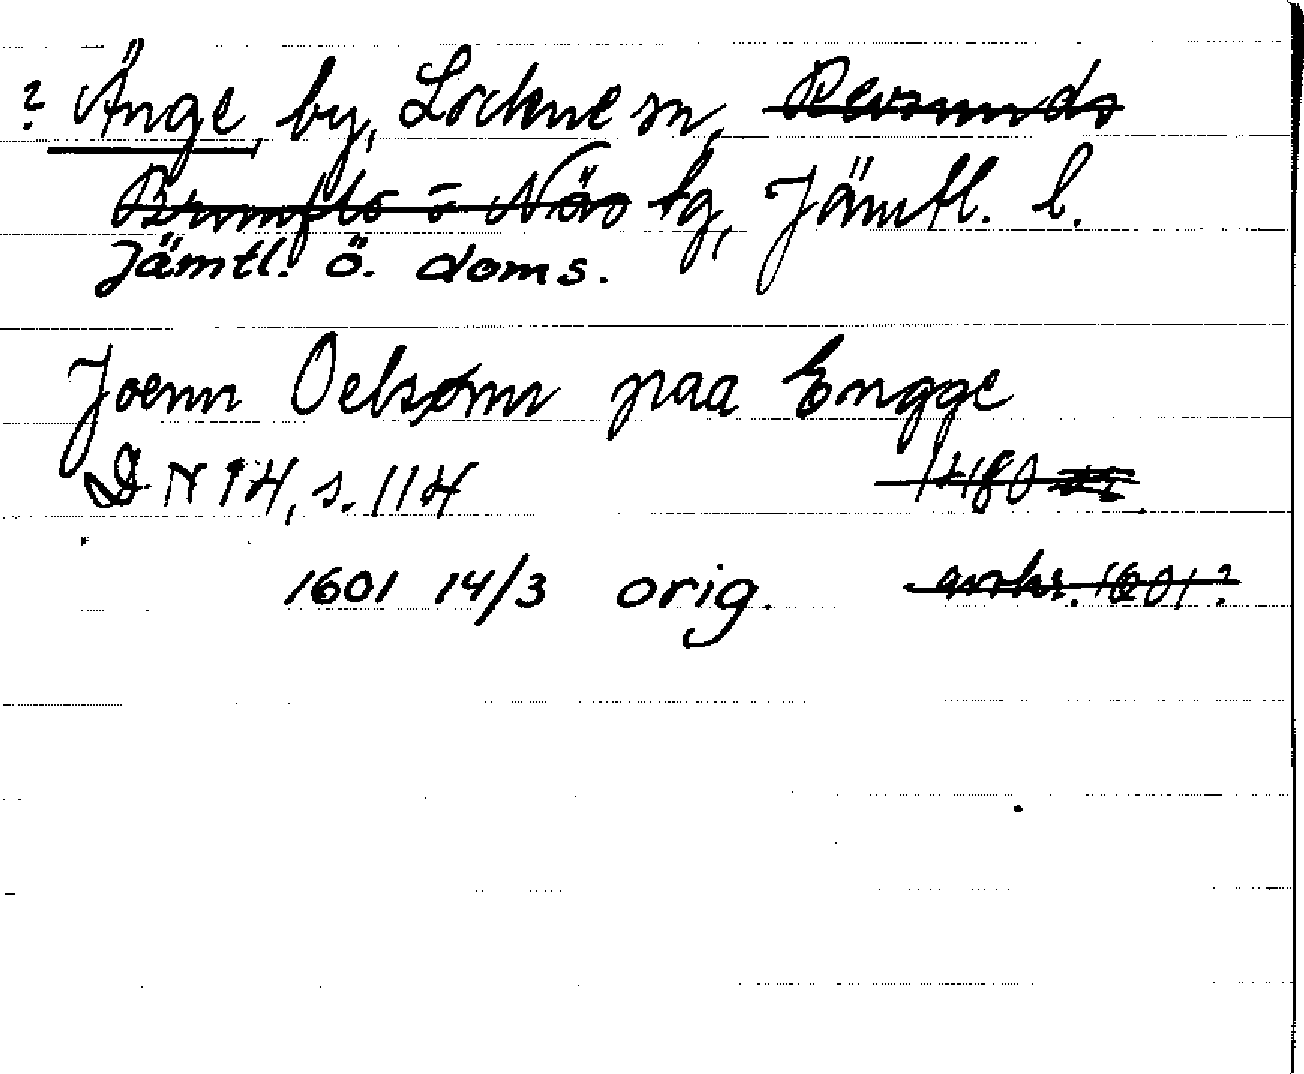 ? Änge by, Lockne sn, Revsunds
Brunflo o Näs tg, Jämtl. l.
Jämtl. ö. doms.
Joenn Oelsønn paa Engge
DN 14, s. 114 1480
1601 14/3 orig. avskr. 1601?